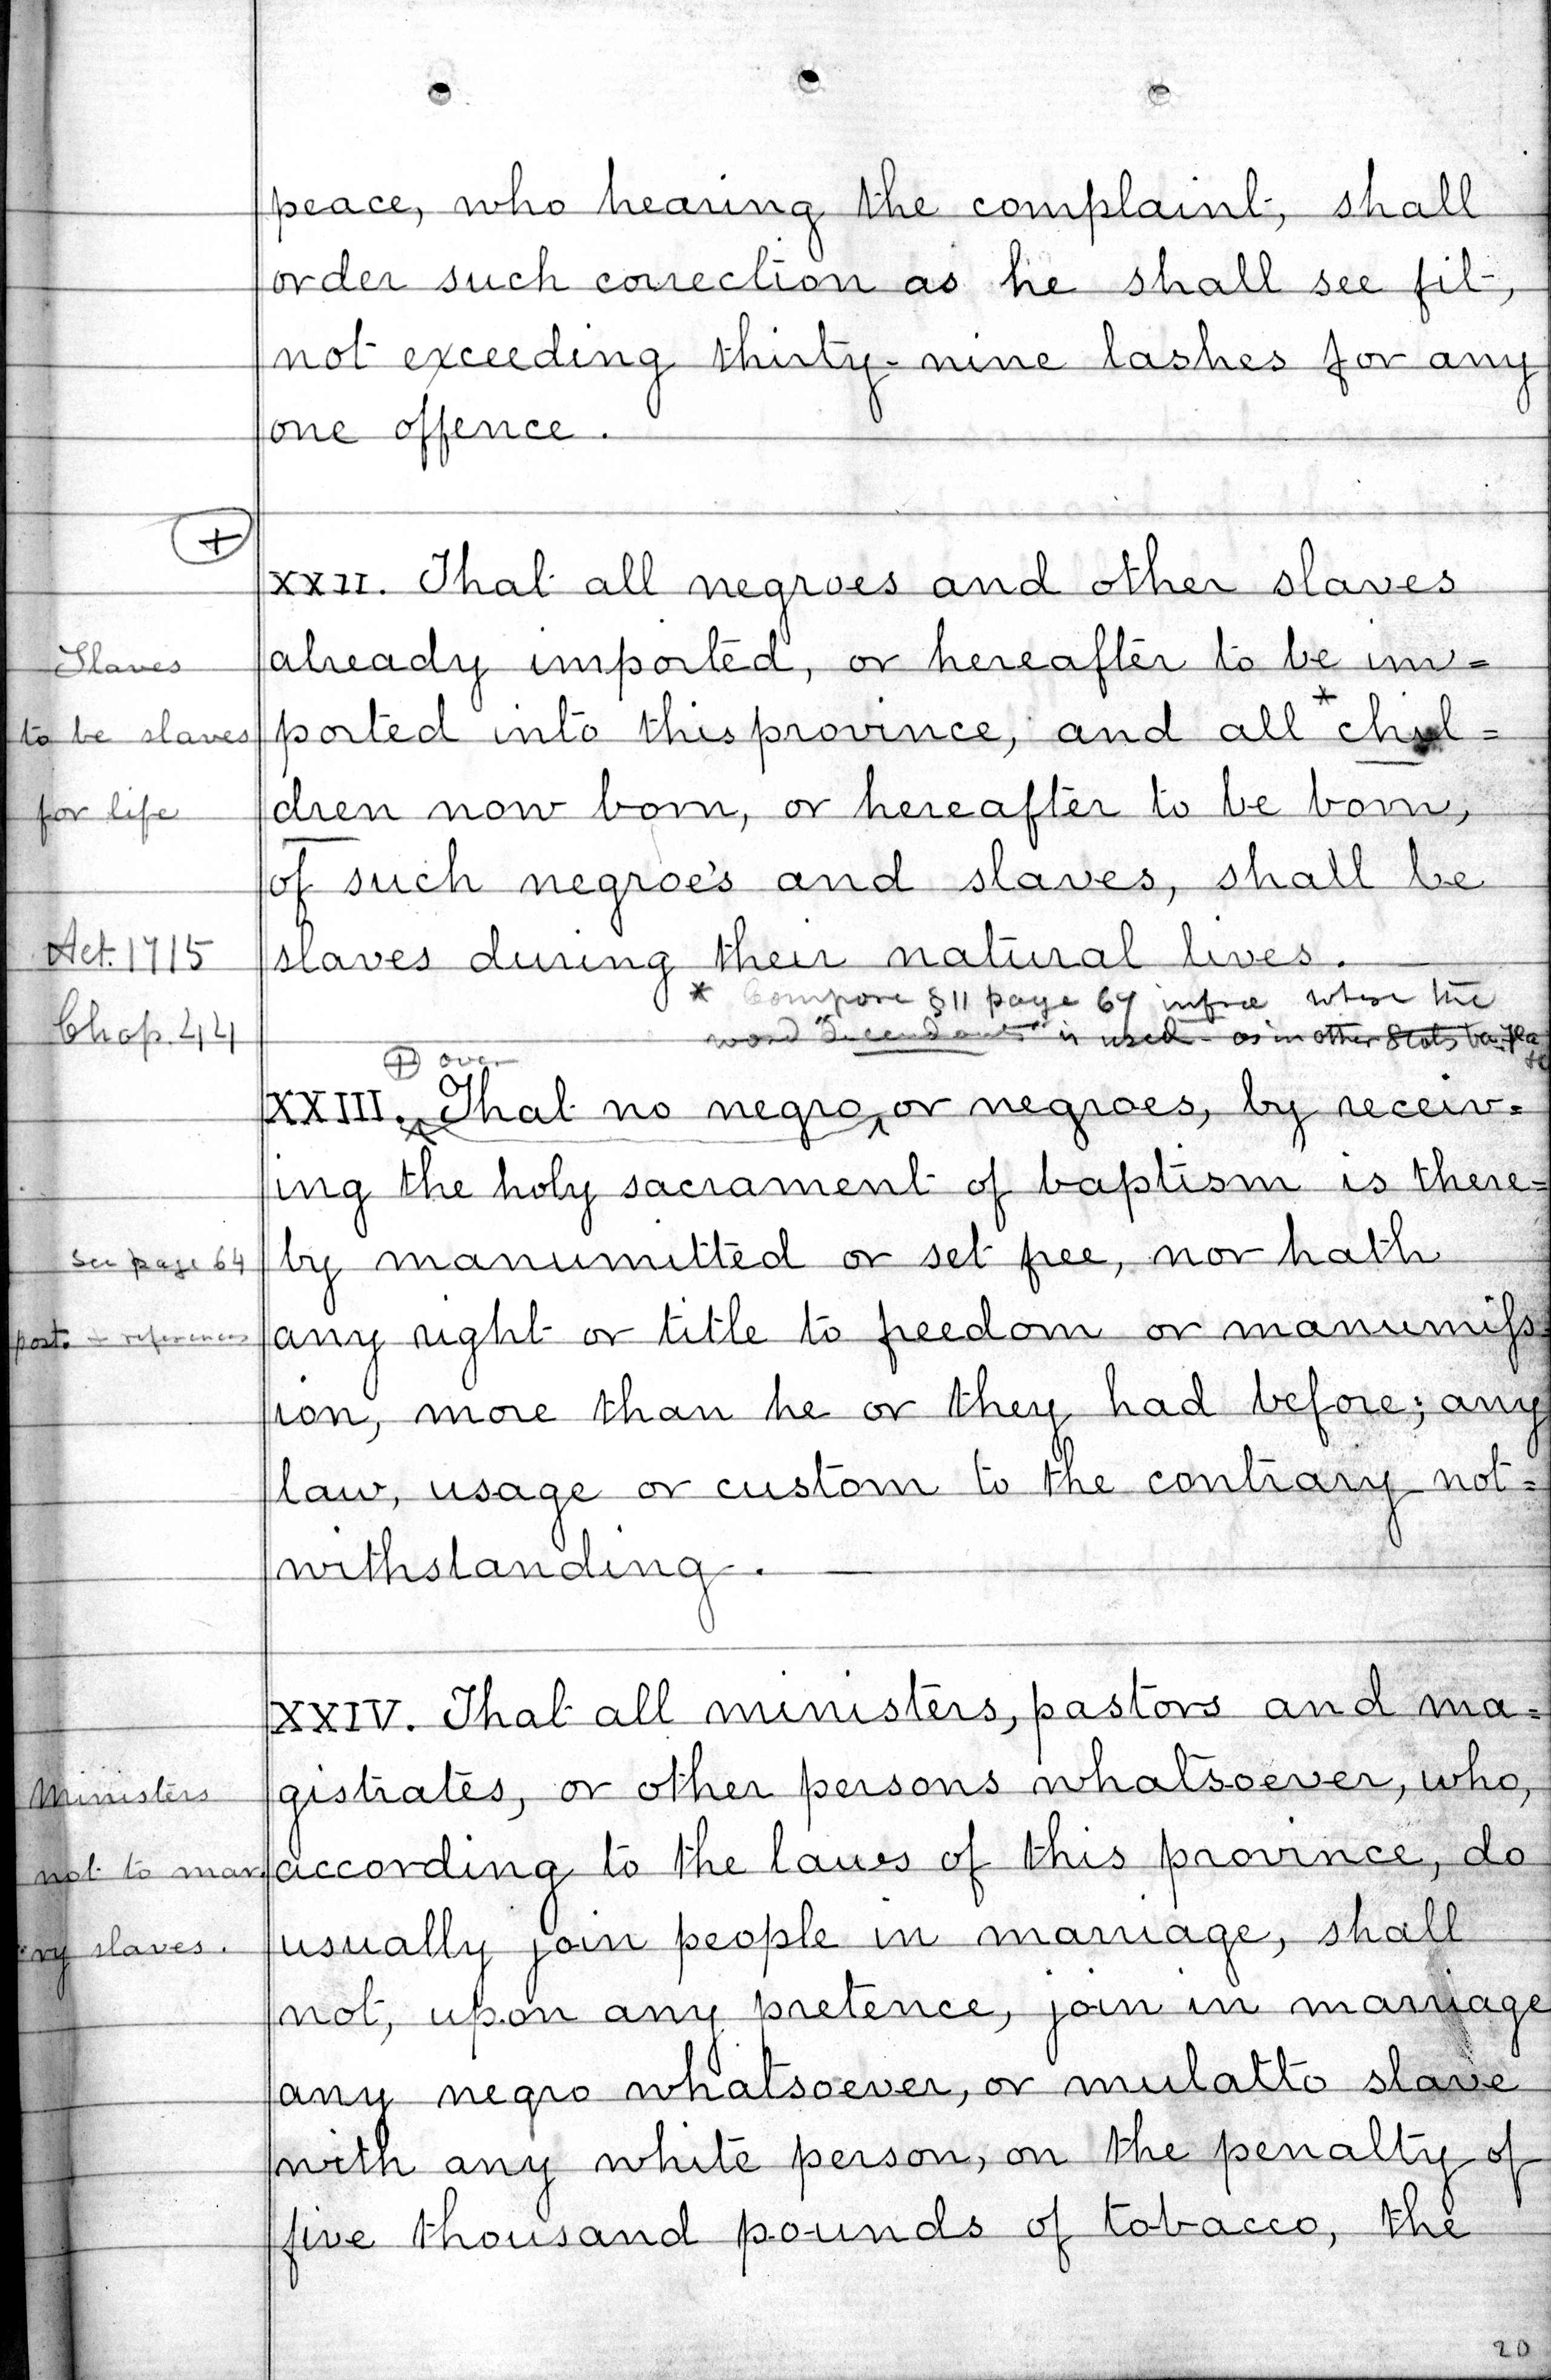 peace, who hearing the complaint, shall
order such correction as he shall see fit,
not exceeding thirty-nine lashes for any
one offence.
+
XXII. That all negroes and other slaves
Slaves
already imported, or hereafter to be im=
to be slaves
ported into this province, and all * chil=
for life
dren now born, or hereafter to be born,
of such negroe's and slaves, shall be
Act. 1715
slaves during their natural lives.
* Compare § 11 page 64 infra where the
Chap. 44
word "decendants" is used - as in other Stats
+ over
XXIII. That no negro or negroes, by receiv=
ing the holy sacrament of baptism is there=
see page 64
by manumitted or set free, nor hath
post. + references
any right or title to freedom or manumiss=
ion, more than he or they had before; any
law, usage or custom to the contrary not=
withstanding.
XXIV. That all ministers, pastors and ma=
Ministers
gistrates, or other persons whatsoever, who,
not to mar
according to the laws of this province, do
ry slaves.
usually join people in marriage, shall
not, upon any pretence, join in marriage
any negro whatsoever, or mulatto slave
with any white person, on the penalty of
five thousand pounds of tobacco, the
20